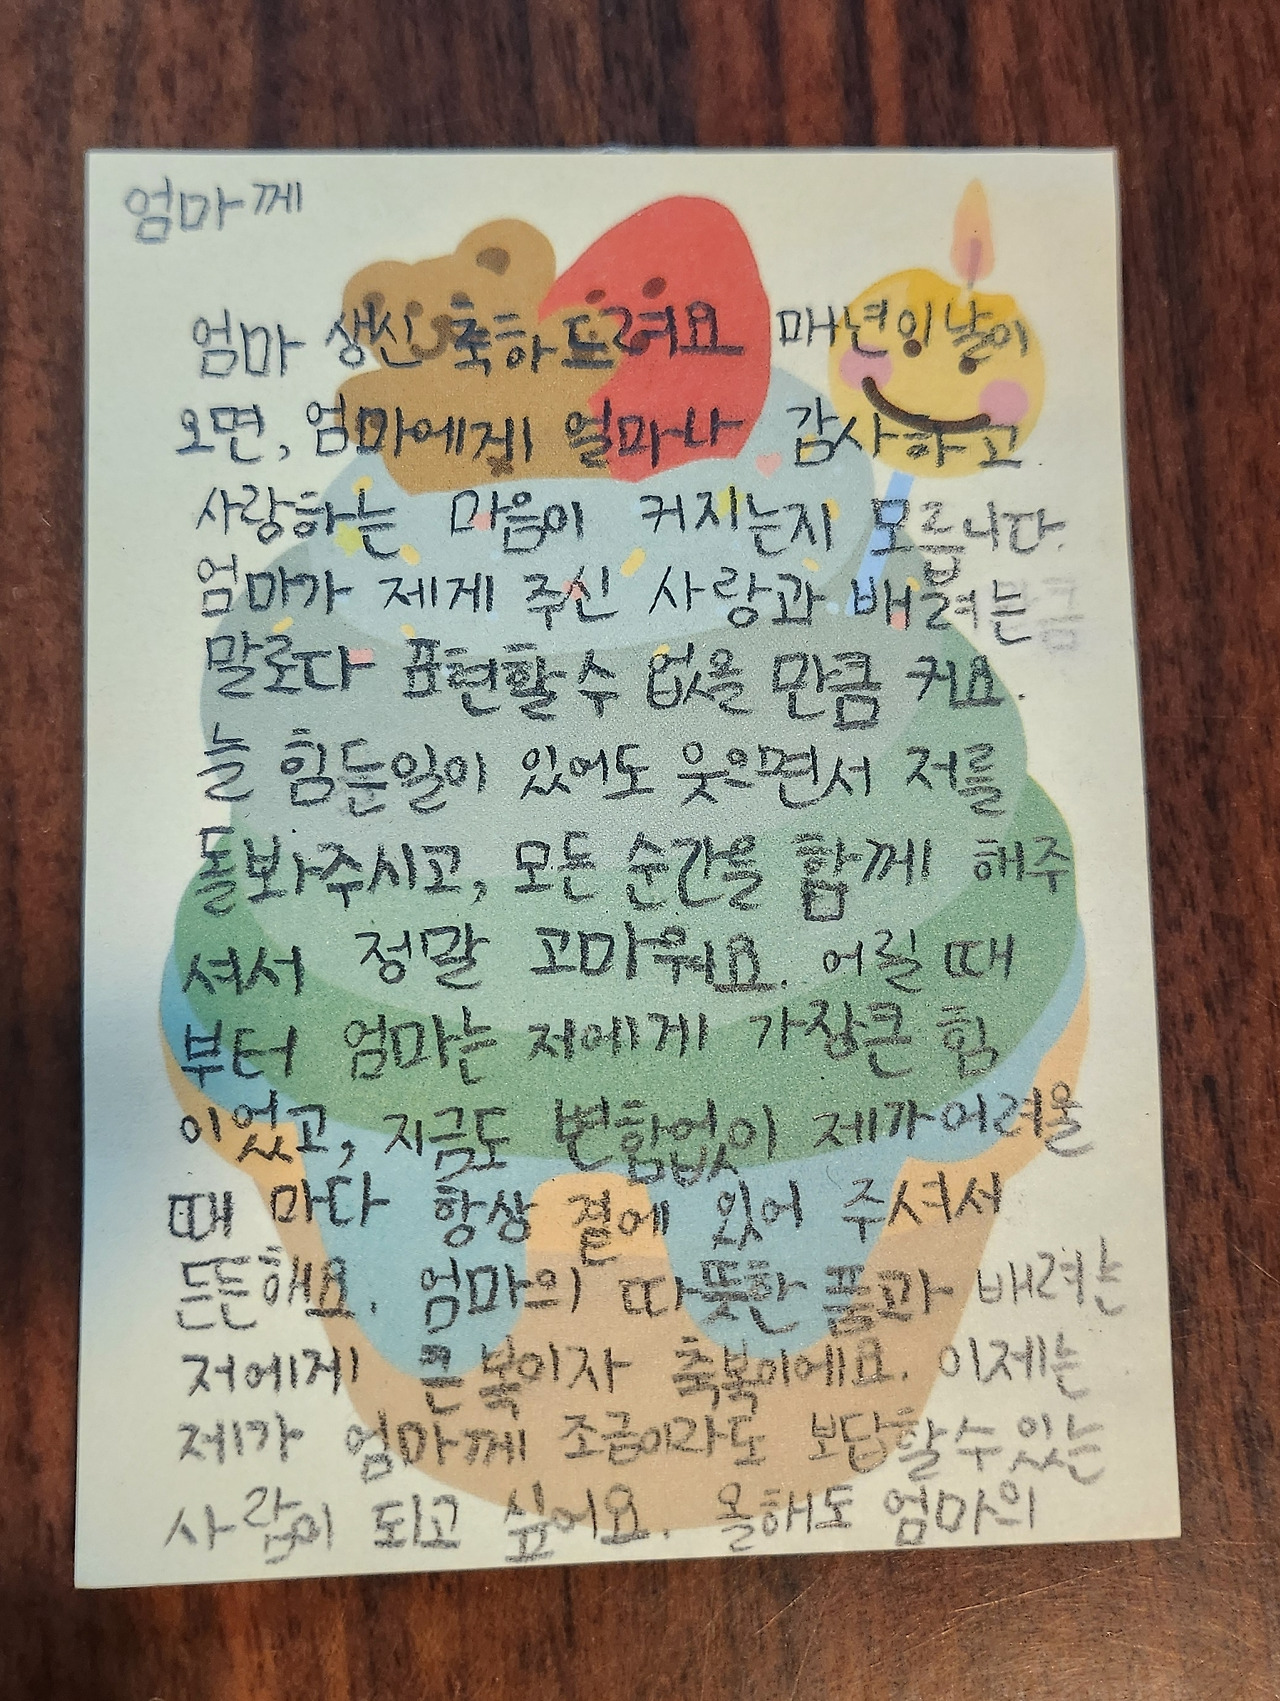 엄마께
엄마 생신 축하 드려요 매년 이 날이
오면, 엄마에게 얼마나 감사하고
사랑하는 마음이 커지는지 모릅니다.
엄마가 제게 주신 사랑과
말로다 표현할 수 없을 만큼 커요.
늘 힘든일이 있어도 웃으면서 저를
돌봐주시고, 모든 순간을 함께 해주
셔서 정말 고마워요. 어릴 때
부터 엄마는 저에게 가장큰 힘
이었고, 지금도 변함없이 제가 어려울
때 마다 항상 곁에 있어 주셔서
든든해요. 엄마의 따뜻한 품과 배려는
저에게 큰 복이자 축복이에요. 이제는
제가 엄마께 조금이라도 보답할 수 있는
사람이 되고 싶어요. 올해도 엄마의